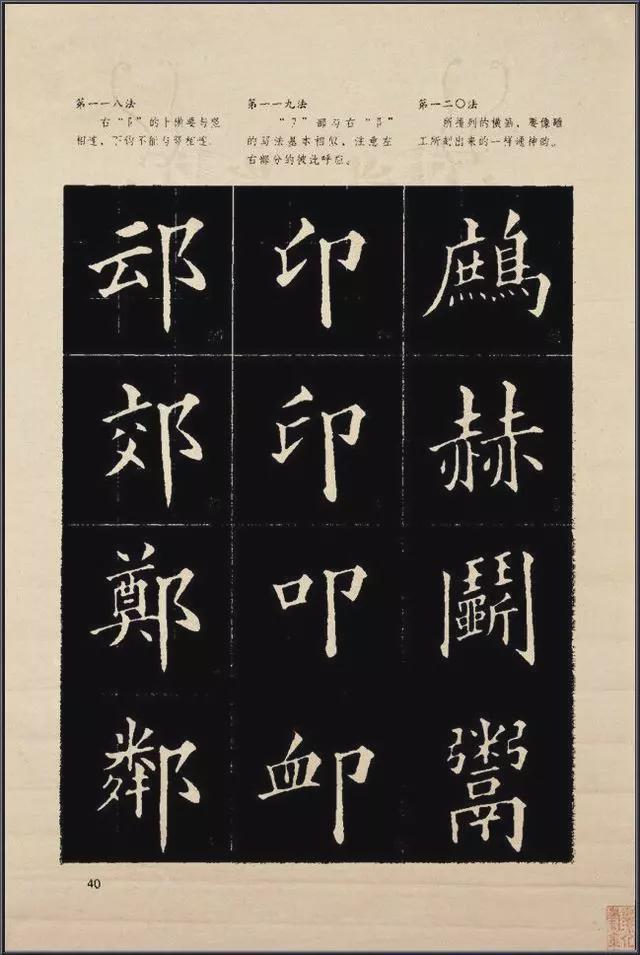 第一一八法
右“阝”的上撇要与竖
相连，下钩不能与竖相连。
第一一九法
“卩”部与右“阝”
的写法基本相似，注意左
右部分的彼此呼应。
第一二〇法
所排列的横画，要像雕
工所刻出来的一样
䢵
郊
鄭
鄰
印
印
叩
卹
鷓
赫
鬭
鬻
40